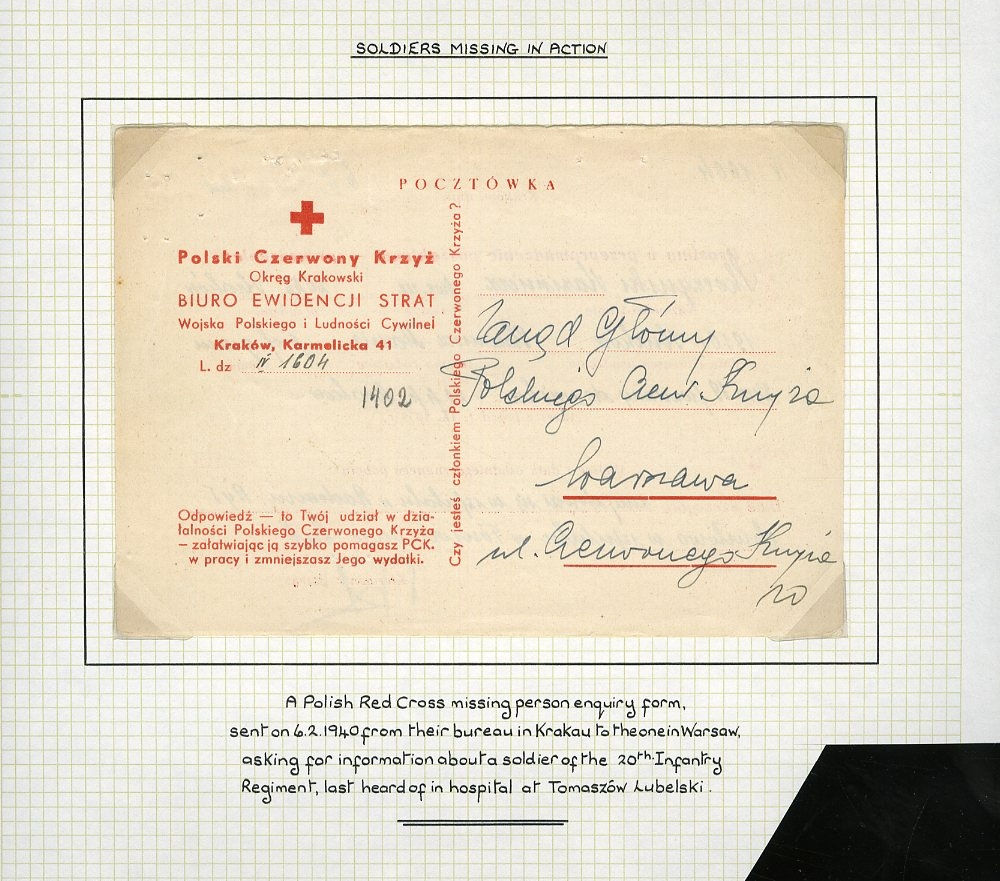 SOLDIERS MISSING IN ACTION
POCZTÓWKA
Polski Czerwony Krzyż
Okręg Krakowski
BIURO EWIDENCJI STRAT
Wojska Polskiego i Ludności Cywilnej
Kraków, Karmelicka 41
L. dz IV 1604
1402
Odpowiedź — to Twój udział w dzia-
łalności Polskiego Czerwonego Krzyża
— załatwiając ją szybko pomagasz PCK.
w pracy i zmniejszasz Jego wydatki.
Czy jesteś członkiem Polskiego Czerwonego Krzyża?
Zarząd Główny
Polskiego Czerw. Krzyża
Warszawa
ul. Czerwonego Krzyża
20
A Polish Red Cross missing person enquiry form,
sent on 6.2.1940 from their bureau in Krakau to the one in Warsaw,
asking for information about a soldier of the 20th. Infantry
Regiment, last heard of in hospital at Tomaszów Lubelski.